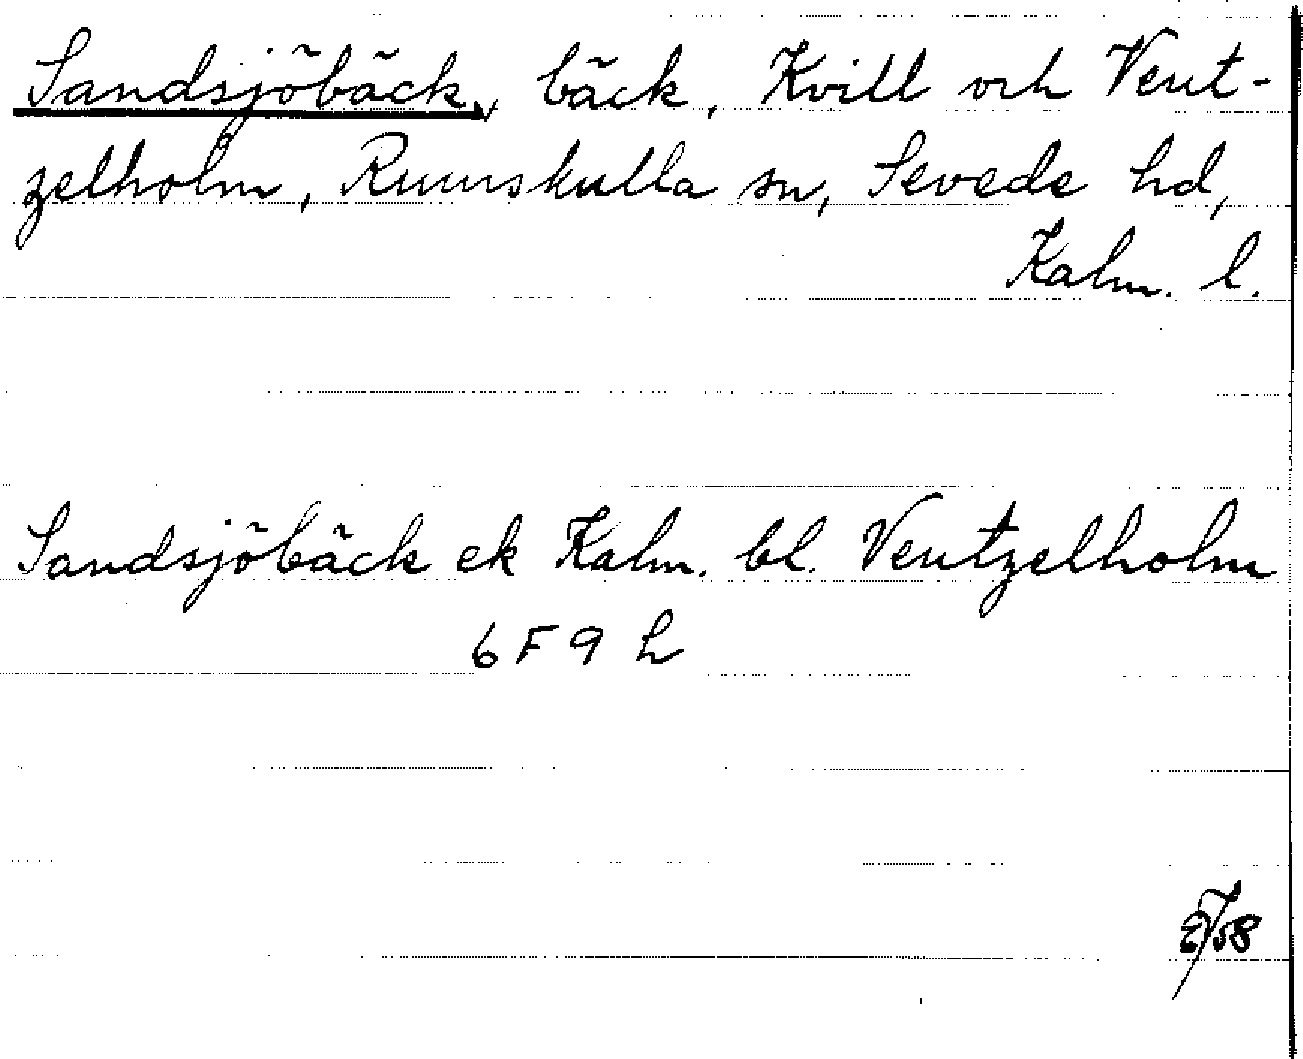 Sandsjöbäck, bäck, Kvill och Vent-
zelholm, Rumskulla sn, Sevede hd,
Kalm. l.
Sandsjöbäck ek Kalm. bl. Ventzelholm
6 F 9 h